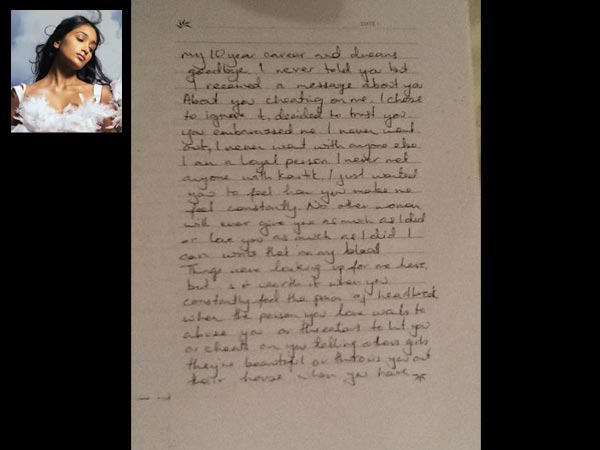 DATE:
my 10 year career and dreams
goodbye. I never told you but
I received a message about you
About you cheating on me. I chose
to ignore it, decided to trust you
you embarassed me. I never went
out, I never went with anyone else
I am a Loyal person I never met
anyone with Kartik, I just wanted
you to feel how you make me
feel constantly. No other woman
will ever give you as much as I did
or love you as much as I did I
can write that in my blood
Things were looking up for me here,
but is it worth it when you
constantly feel the pain of heartbreak
when the person you love wants to
abuse you or threatens to hit you
or cheats on you telling others girls
they're beautiful or throws you out
their house when you have